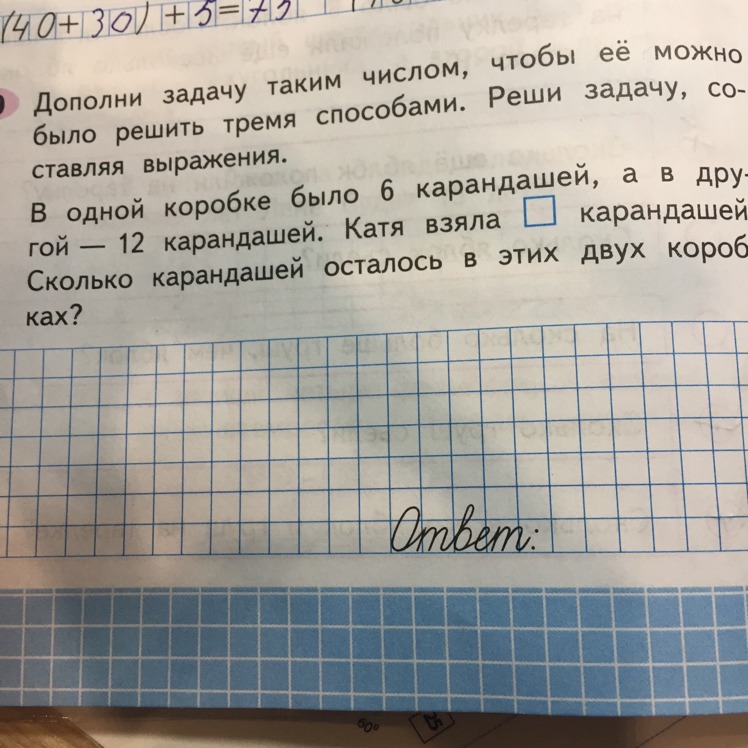 (40+30)+5=75
Дополни задачу таким числом, чтобы её можно
было решить тремя способами. Реши задачу, со-
ставляя выражения.
В одной коробке было 6 карандашей, а в дру-
гой — 12 карандашей. Катя взяла □ карандашей
Сколько карандашей осталось в этих двух короб
ках?
Ответ: